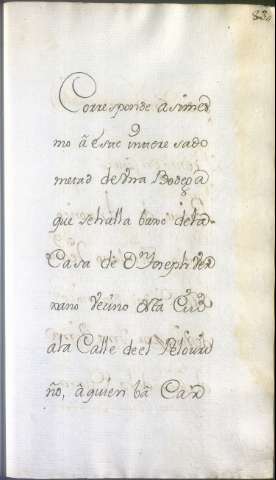 83
Corresponde asimes
mo â este interesado
metad de Vna Bodega
que sehalla baxo dela
Casa de Dn Joseph
Vecino Dsta Ciud
ala Calle deel Pelouri
ño, â quien bâ Car